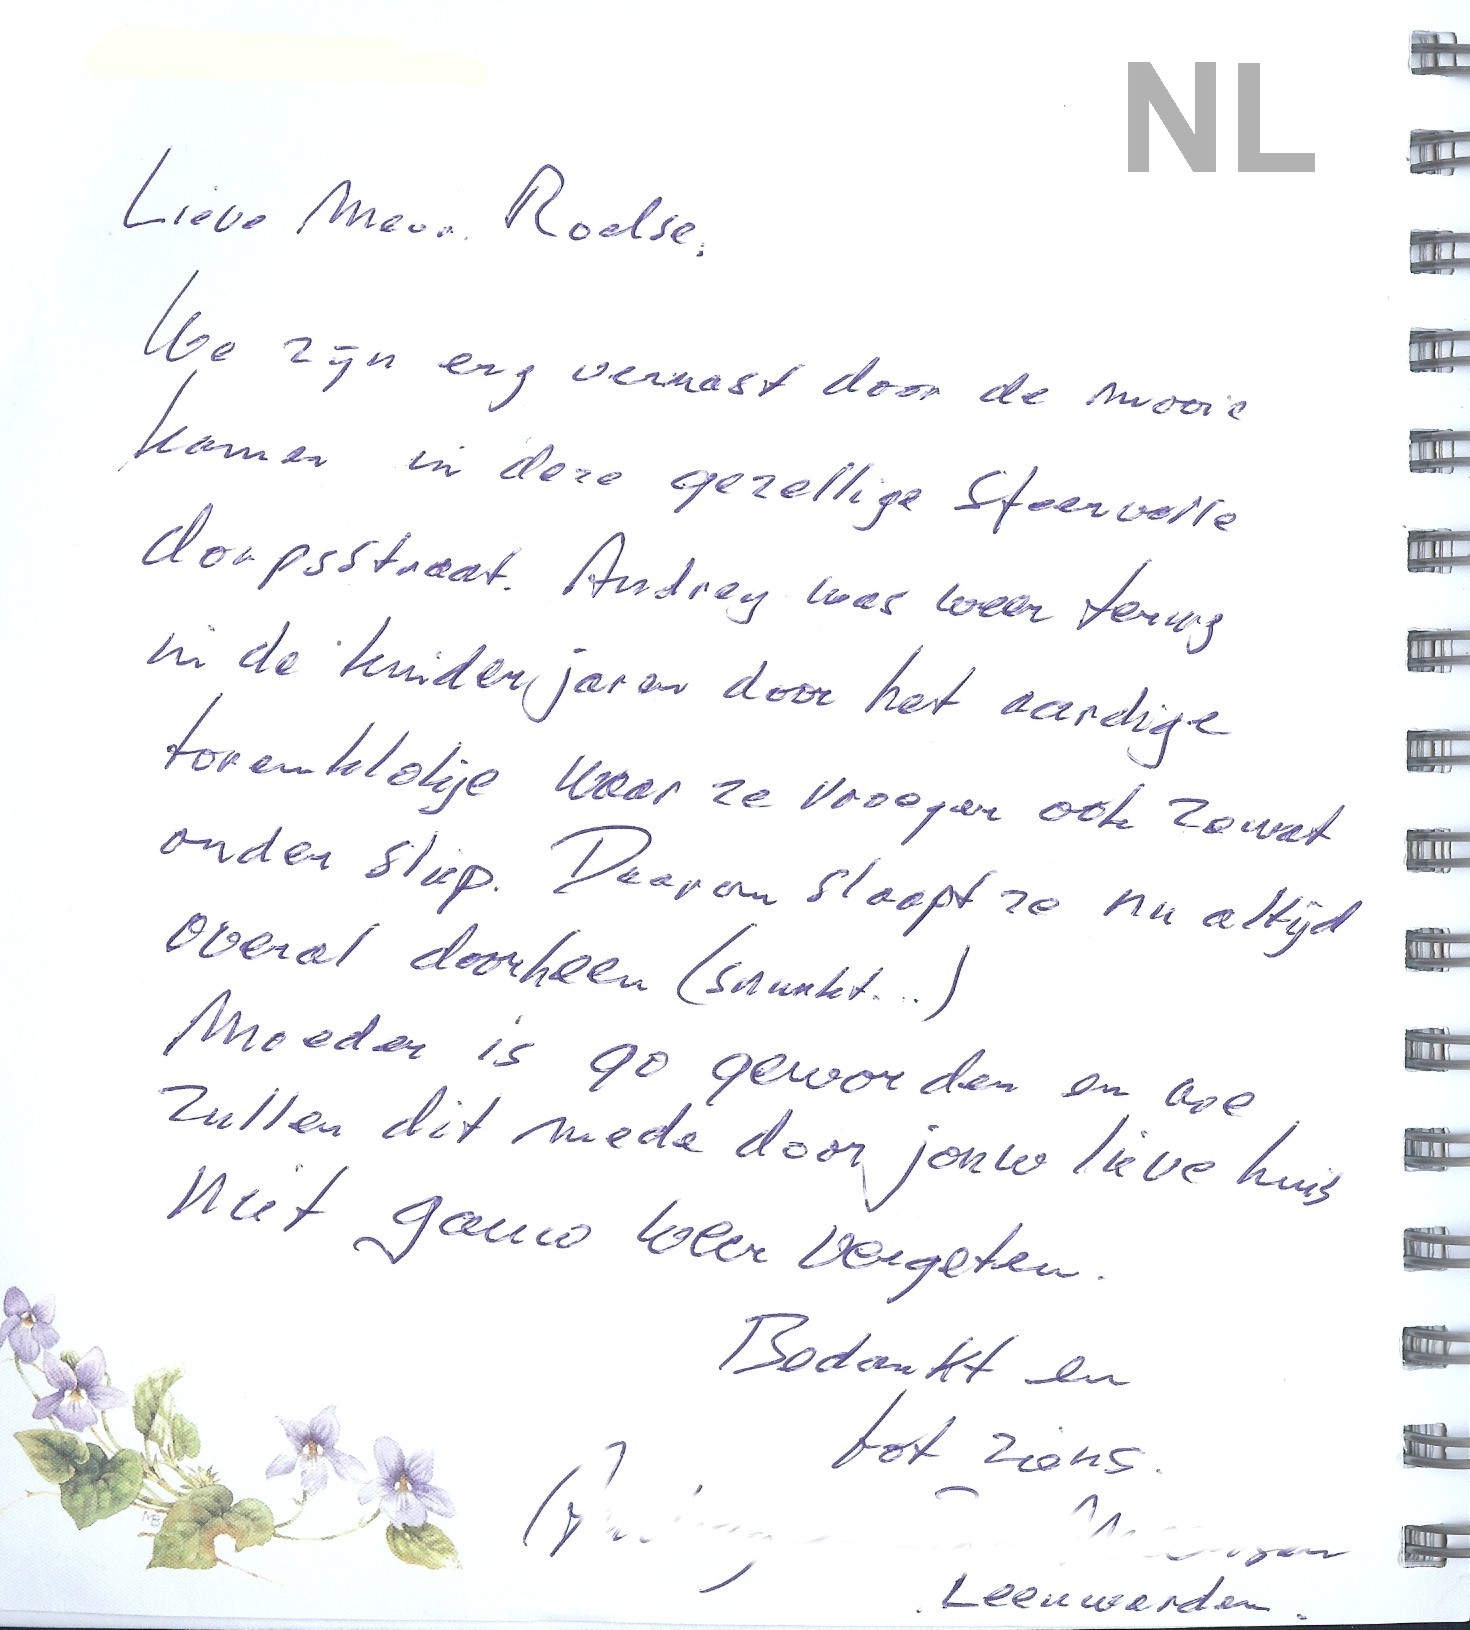 NL
Lieve Mevr. Roelse,
We zijn erg verrast door de mooie
kamer in deze gezellige sfeervolle
dorpsstraat. Audrey was weer terug
in de kinderjaren door het aardige
torenklokje waar ze vroeger ook zowat
onder sliep. Daarom slaapt ze nu altijd
overal doorheen (snurkt...)
Moeder is 90 geworden en we
zullen dit mede door jouw lieve huis
niet gauw weer vergeten.
Bedankt en
tot ziens.
Leeuwarden.